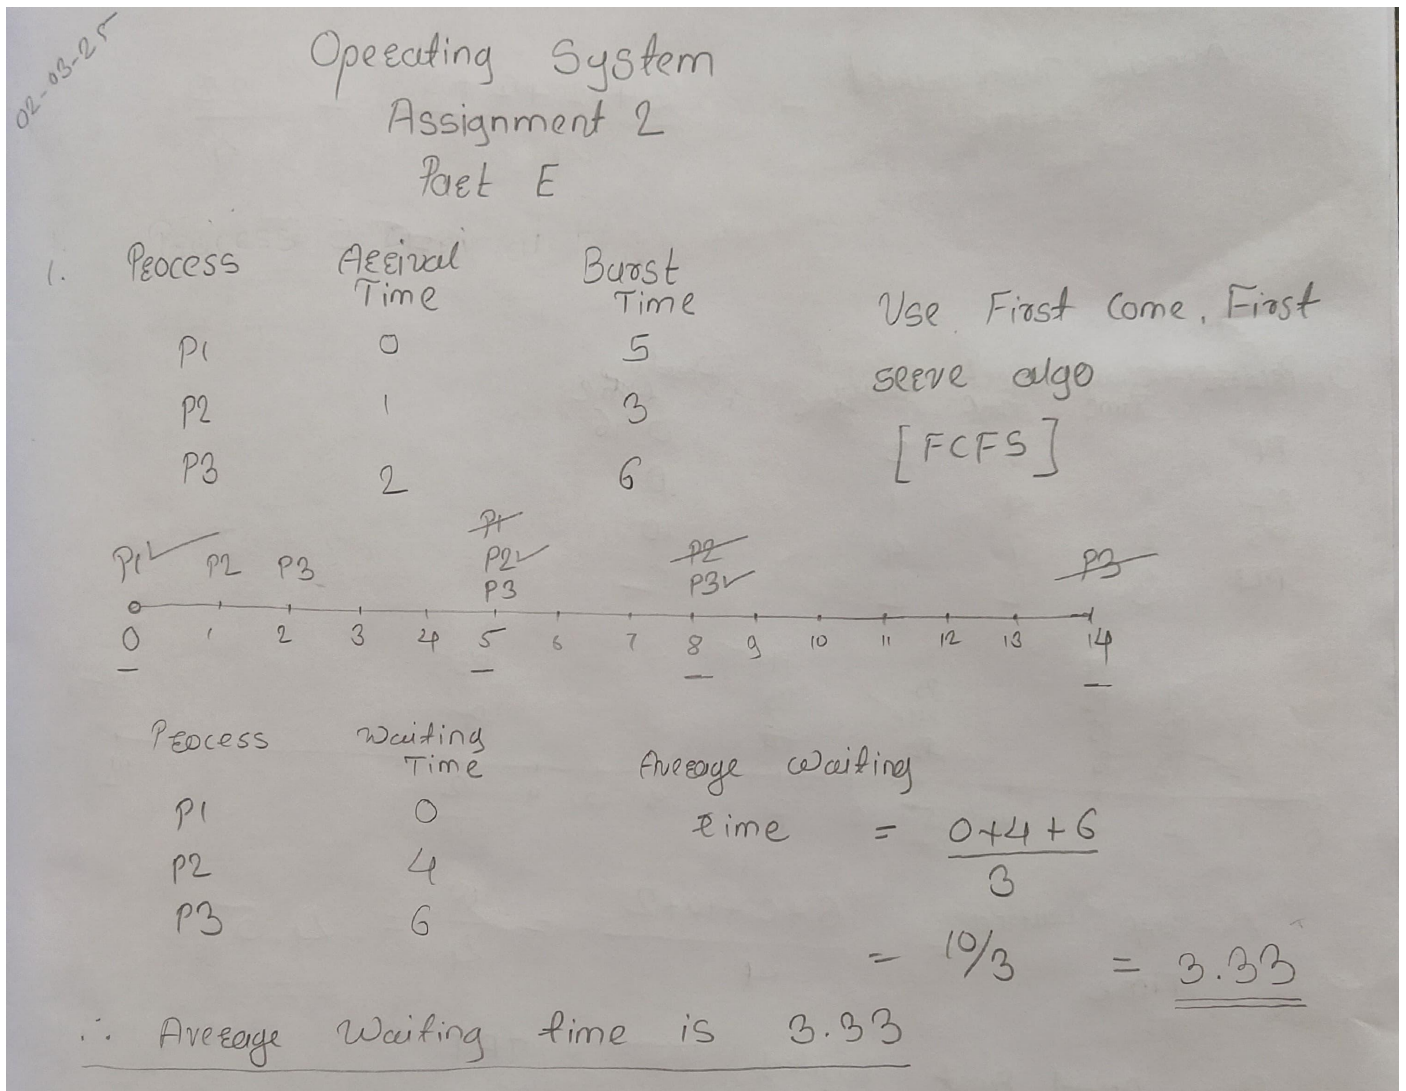 02-03-25
Operating System
Assignment 2
Part E
1. Process Arrival Time Burst Time
P1 0 5
P2 1 3
P3 2 6
Use First Come, First
serve algo
[FCFS]
P1 P2 P3 P1 P2 P3 P2 P3 P3
0 1 2 3 4 5 6 7 8 9 10 11 12 13 14
Process Waiting Time
P1 0
P2 4
P3 6
Average waiting
time = 0+4+6
3
= 10/3 = 3.33
∴ Average Waiting time is 3.33